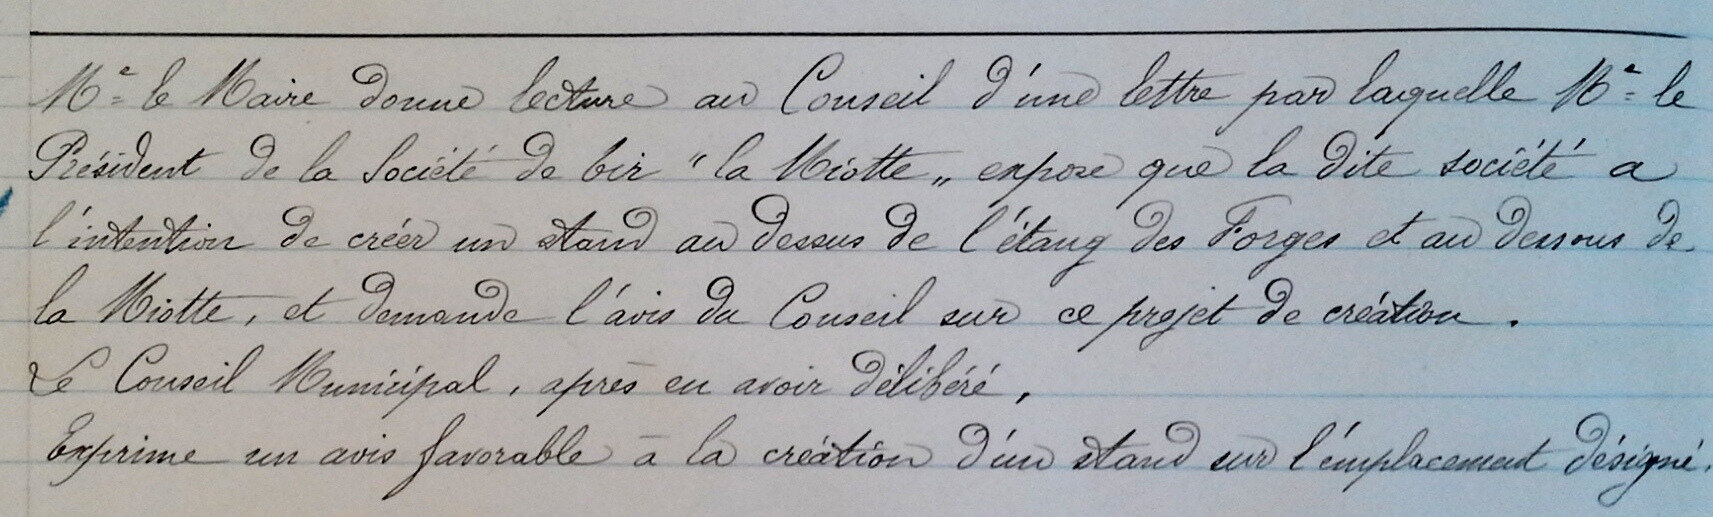 Mr. le Maire donne lecture au Conseil d'une lettre par laquelle Mr. le
Président de la Société de tir "la Miotte" expose que la dite société a
l'intention de créer un stand au dessus de l'étang des Forges et au dessous de
la Miotte, et demande l'avis du Conseil sur ce projet de création.
Le Conseil Municipal, après en avoir délibéré,
Exprime un avis favorable à la création d'un stand sur l'emplacement désigné.